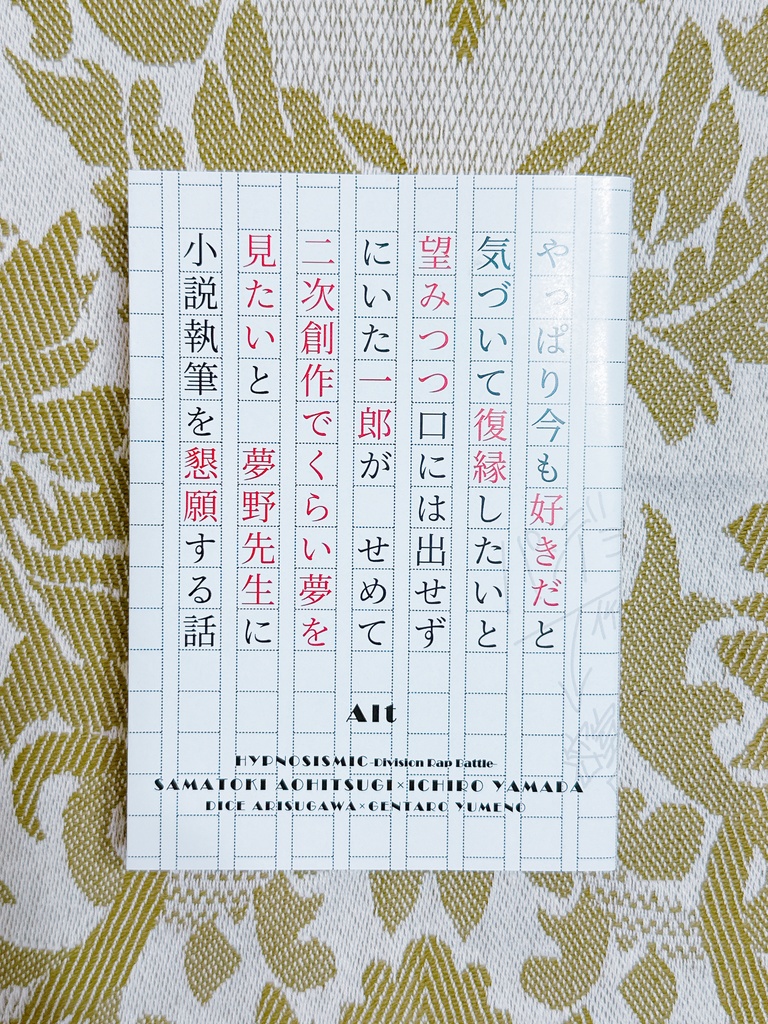 やっぱり今も好きだと
気づいて復縁したいと
望みつつ口には出せず
にいた一郎が　せめて
二次創作でくらい夢を
見たいと　夢野先生に
小説執筆を懇願する話
Alt
HYPNOSISMIC-Division Rap Battle-
SAMATOKI AOHITSUGI×ICHIRO YAMADA
DICE ARISUGAWA×GENTARO YUMENO